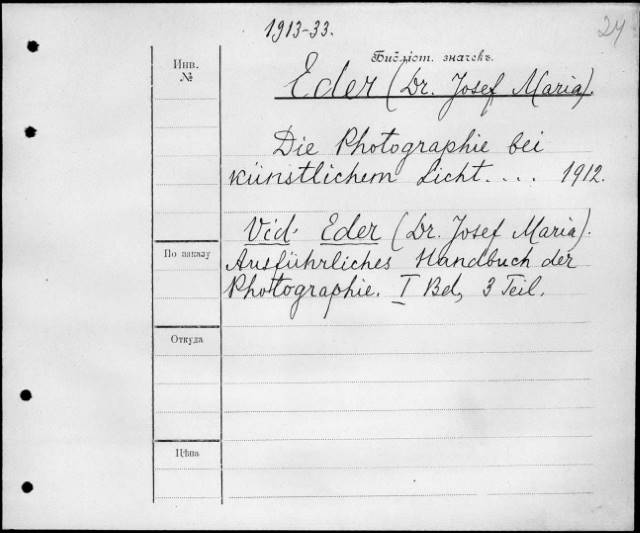 1913-33.
24
Инв.
№
Библіот. значекъ.
Eder (Dr. Josef Maria).
Die Photographie bei
künstlichem Licht.... 1912.
Vid. Eder (Dr. Josef Maria).
По заказу
Ausführliches Handbuch der
Photographie. I Bd, 3 Teil.
Откуда
Цѣна